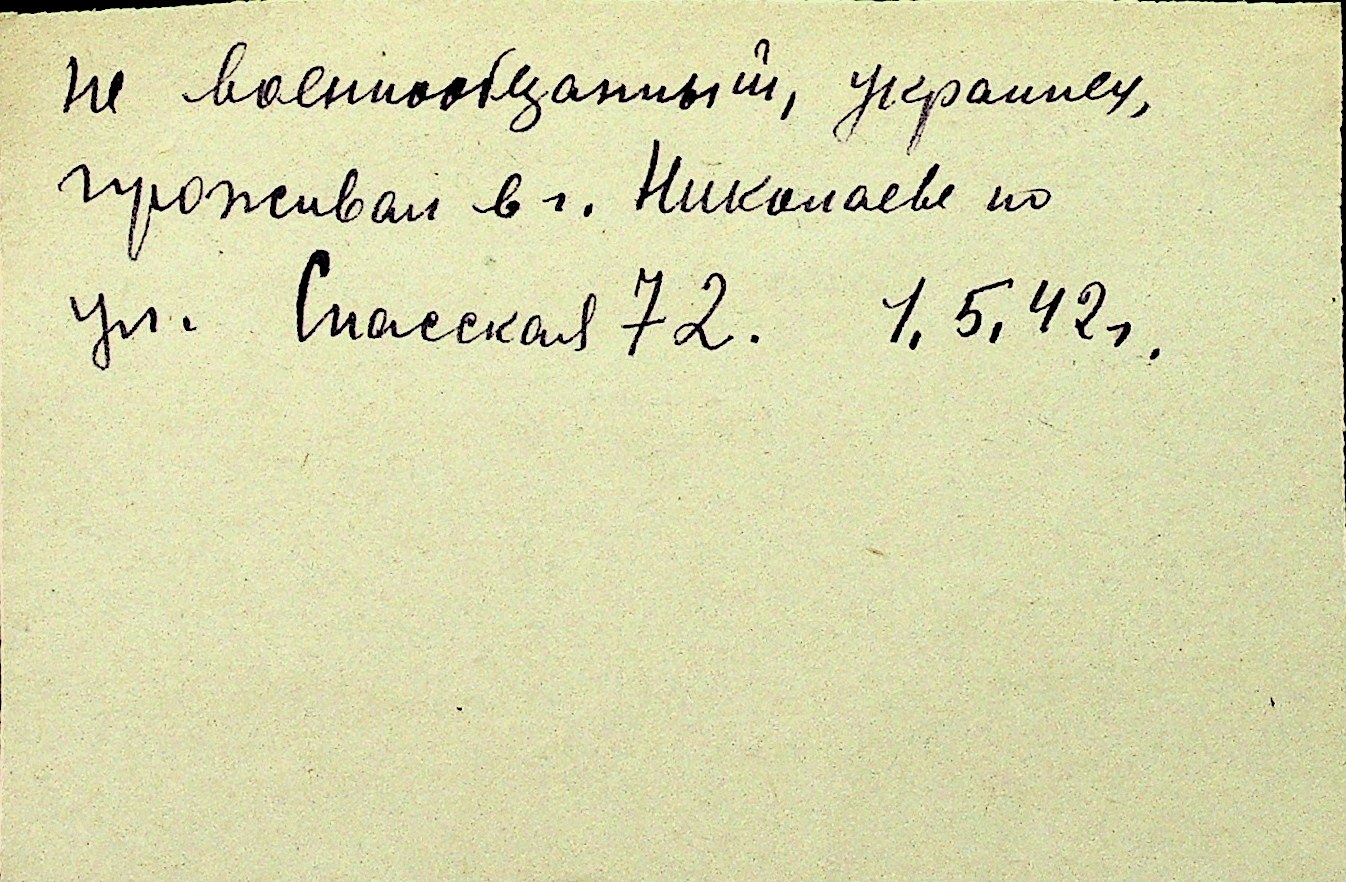 не военнообязанный, украинец,
проживал в г. Николаеве по
ул. Спасская 72. 1.5.42г.